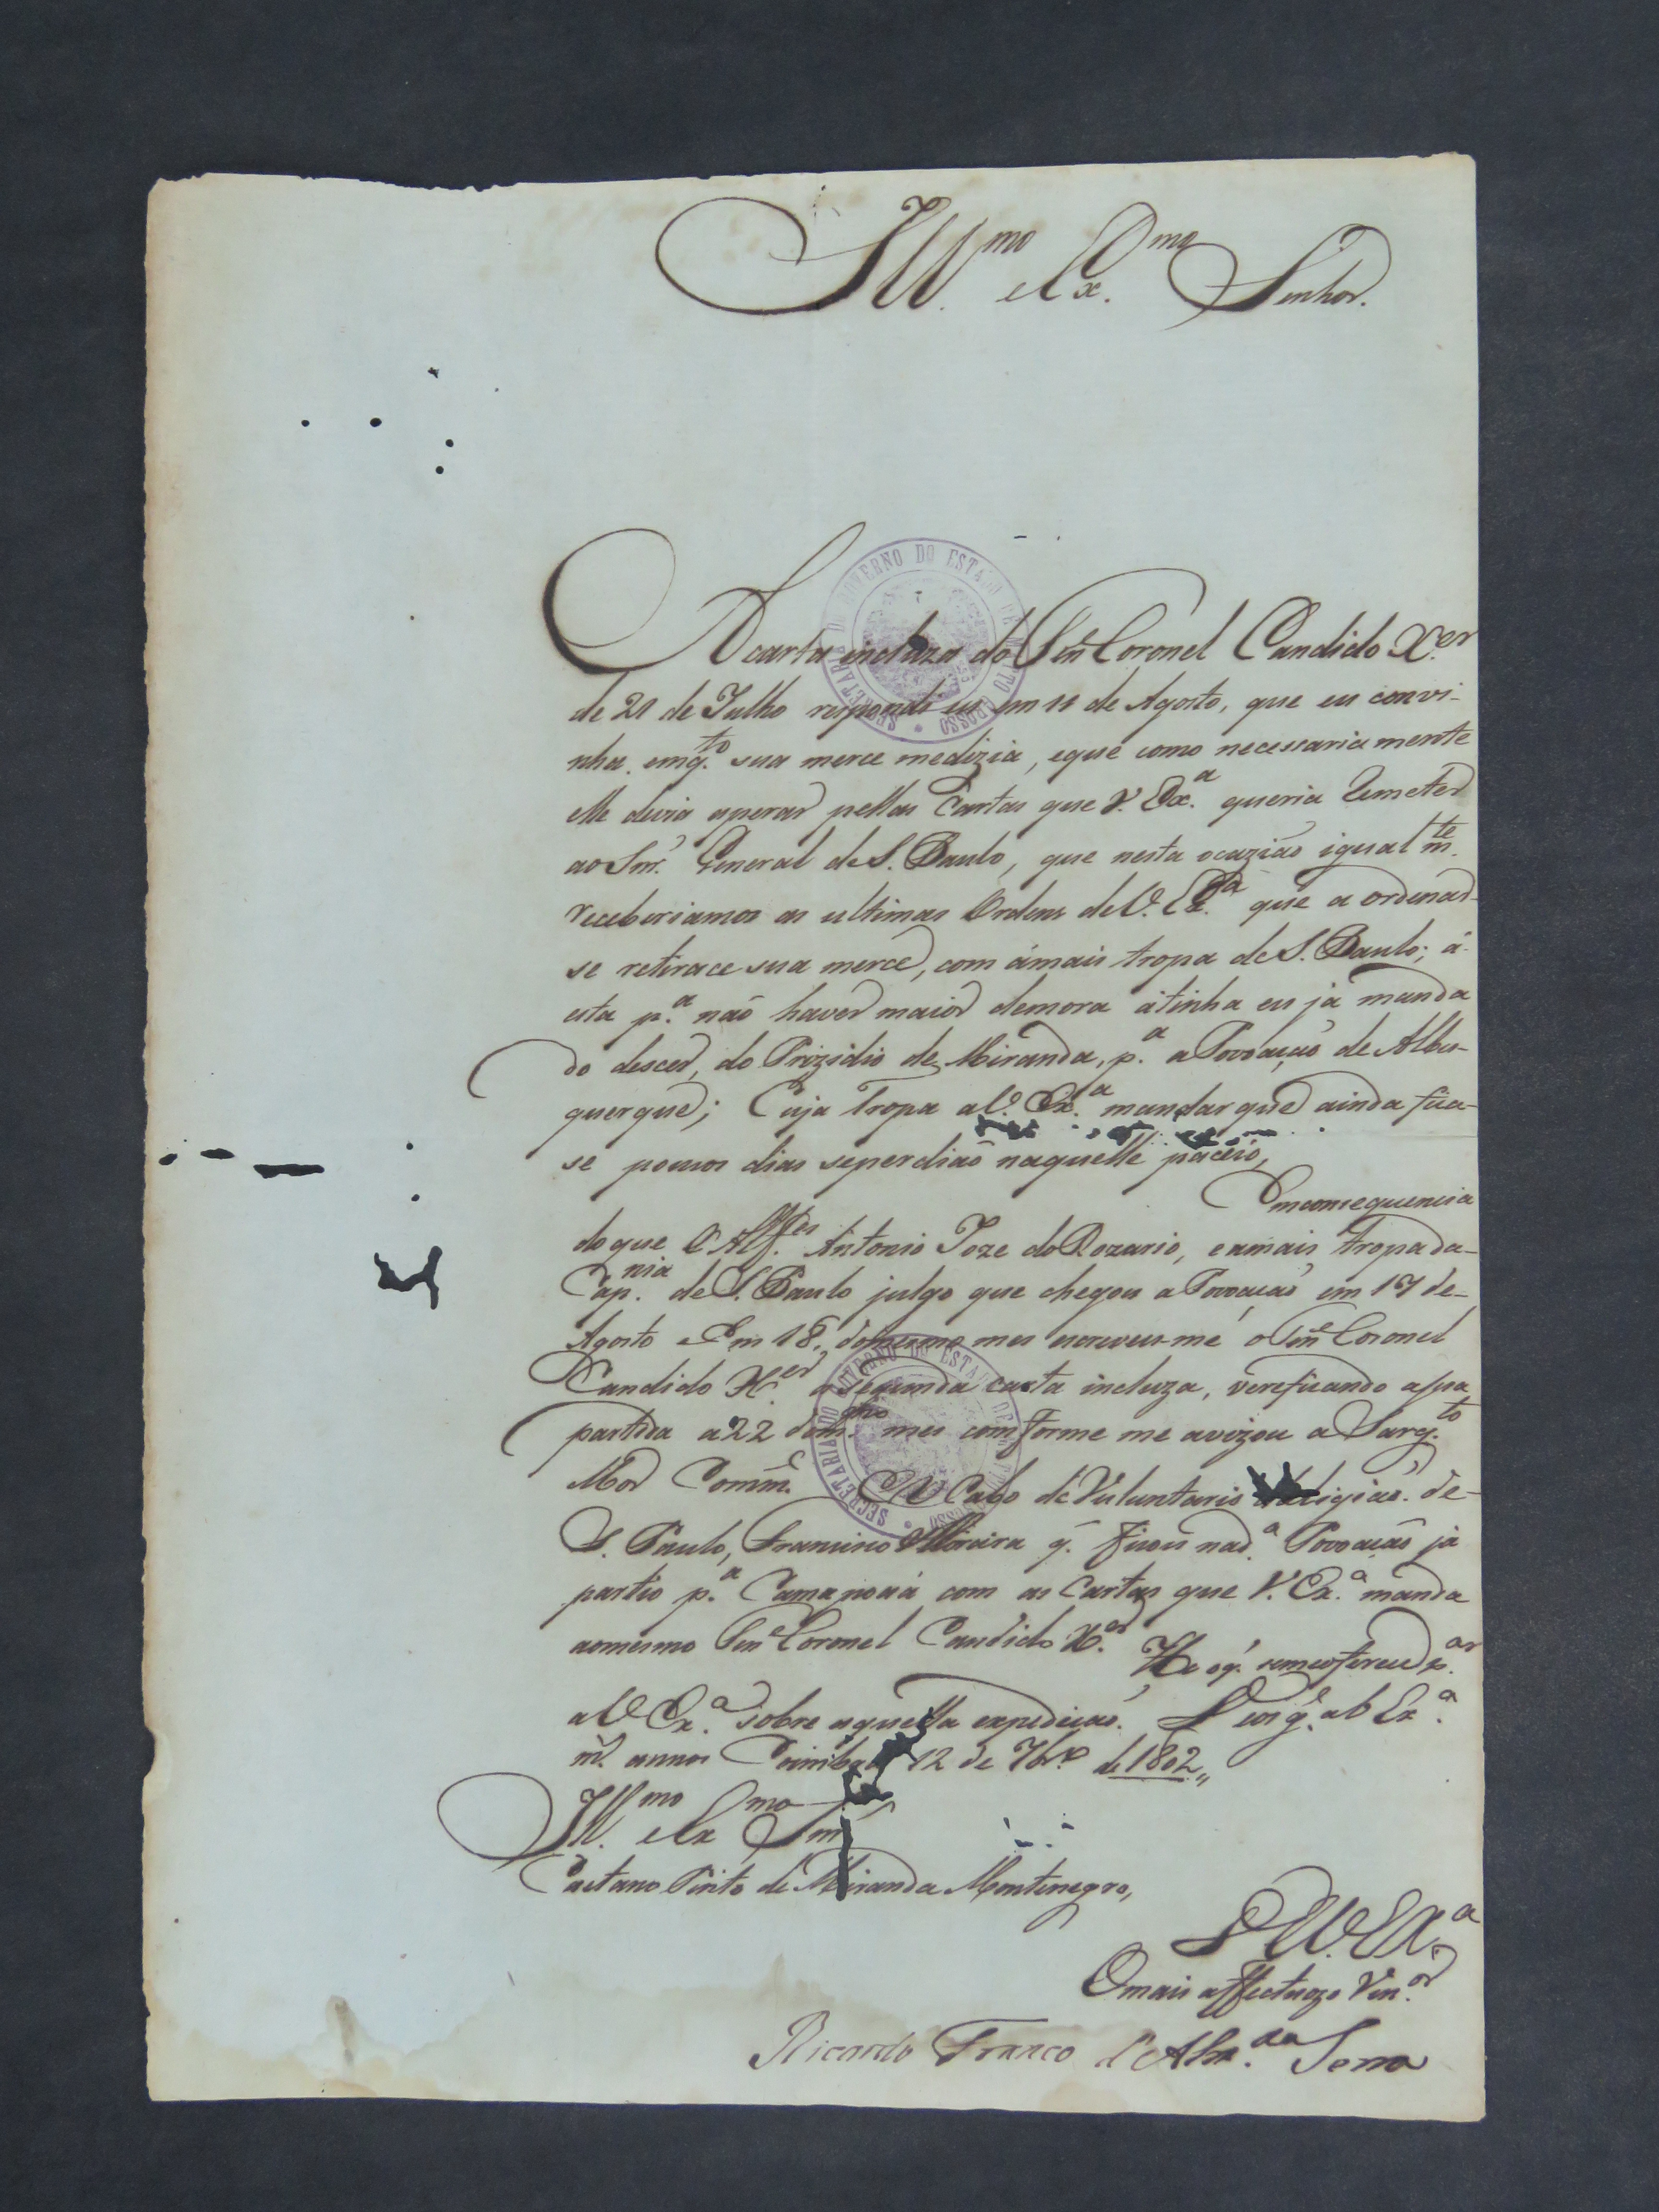 Ill.mo e Ex.mo Senhor.
A carta incluza do Sñr Coronel Candido X.er
de 21 de Julho respondi eu em 11 de Agosto, que eu convi-
nha. emq.to sua merce medizia, eque como necessariamente
elle devia esperar pellas Cartas que V. Ex.a queria Remeter
ao Snr. General de S. Paulo, que nesta ocazião igualm.te
receberiamos as ultimas Ordens de V. Ex.a que a ordenar-
se retirace sua merce, com ámais tropa de S. Paulo; á-
esta p.a não haver maior demora átinha eu já manda
do descer, do Prizidio de Miranda, p.a a Povoação de Albu-
querque; Cuja Tropa a V. Ex.a mandar que ainda fica-
se poucos dias seperdião naquelle paceio,
Emconsequencia
do que O Alf.es Antonio Joze do Rozario, eamais tropa da-
Cap.nia de S. Paulo julgo que chegou a Povoação em 17 de-
Agosto e Em 18, domesmo mes escreveu-me o Sñr Coronel
Candido X.er a segunda carta incluza, vereficando a sua
partida a 22 dom.mo mes comforme me avizou a Sarg.to
Mor Comm.e O Cabo de Voluntario da Ligião de-
S. Paulo, Francisco Moreira q. ficou nad.a Povoação já
partio p.a Camapoãa com as Cartas que V. Ex.a manda
aomesmo Sñr Coronel Candido X.er
He oq. semeoferece p.ar
a V. Ex.a sobre aquella expedição. Deos g.e a V. Ex.a
m.s annos Coimbra 12 de 7br.o de 1802,,
Ill.mo e Ex.mo Snr
Caetano Pinto de Miranda Montenegro,
D V. Ex.a
O mais affectuozo Ven.or
Ricardo Franco d'Alm.da Serra
SECRETARIA DO GOVERNO DO ESTADO DE MATO GROSSO
SECRETARIA DO GOVERNO DO ESTADO DE MATO GROSSO